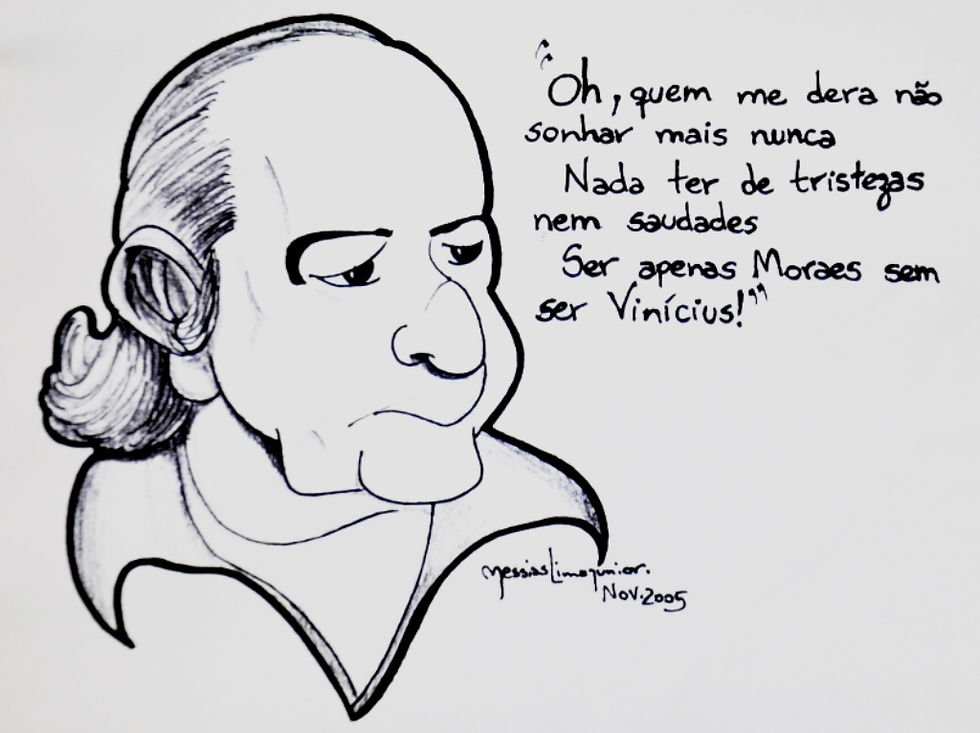 “Oh, quem me dera não
sonhar mais nunca
Nada ter de tristezas
nem saudades
Ser apenas Moraes sem
ser Vinícius!”
Messias Lima Junior.
Nov.2005